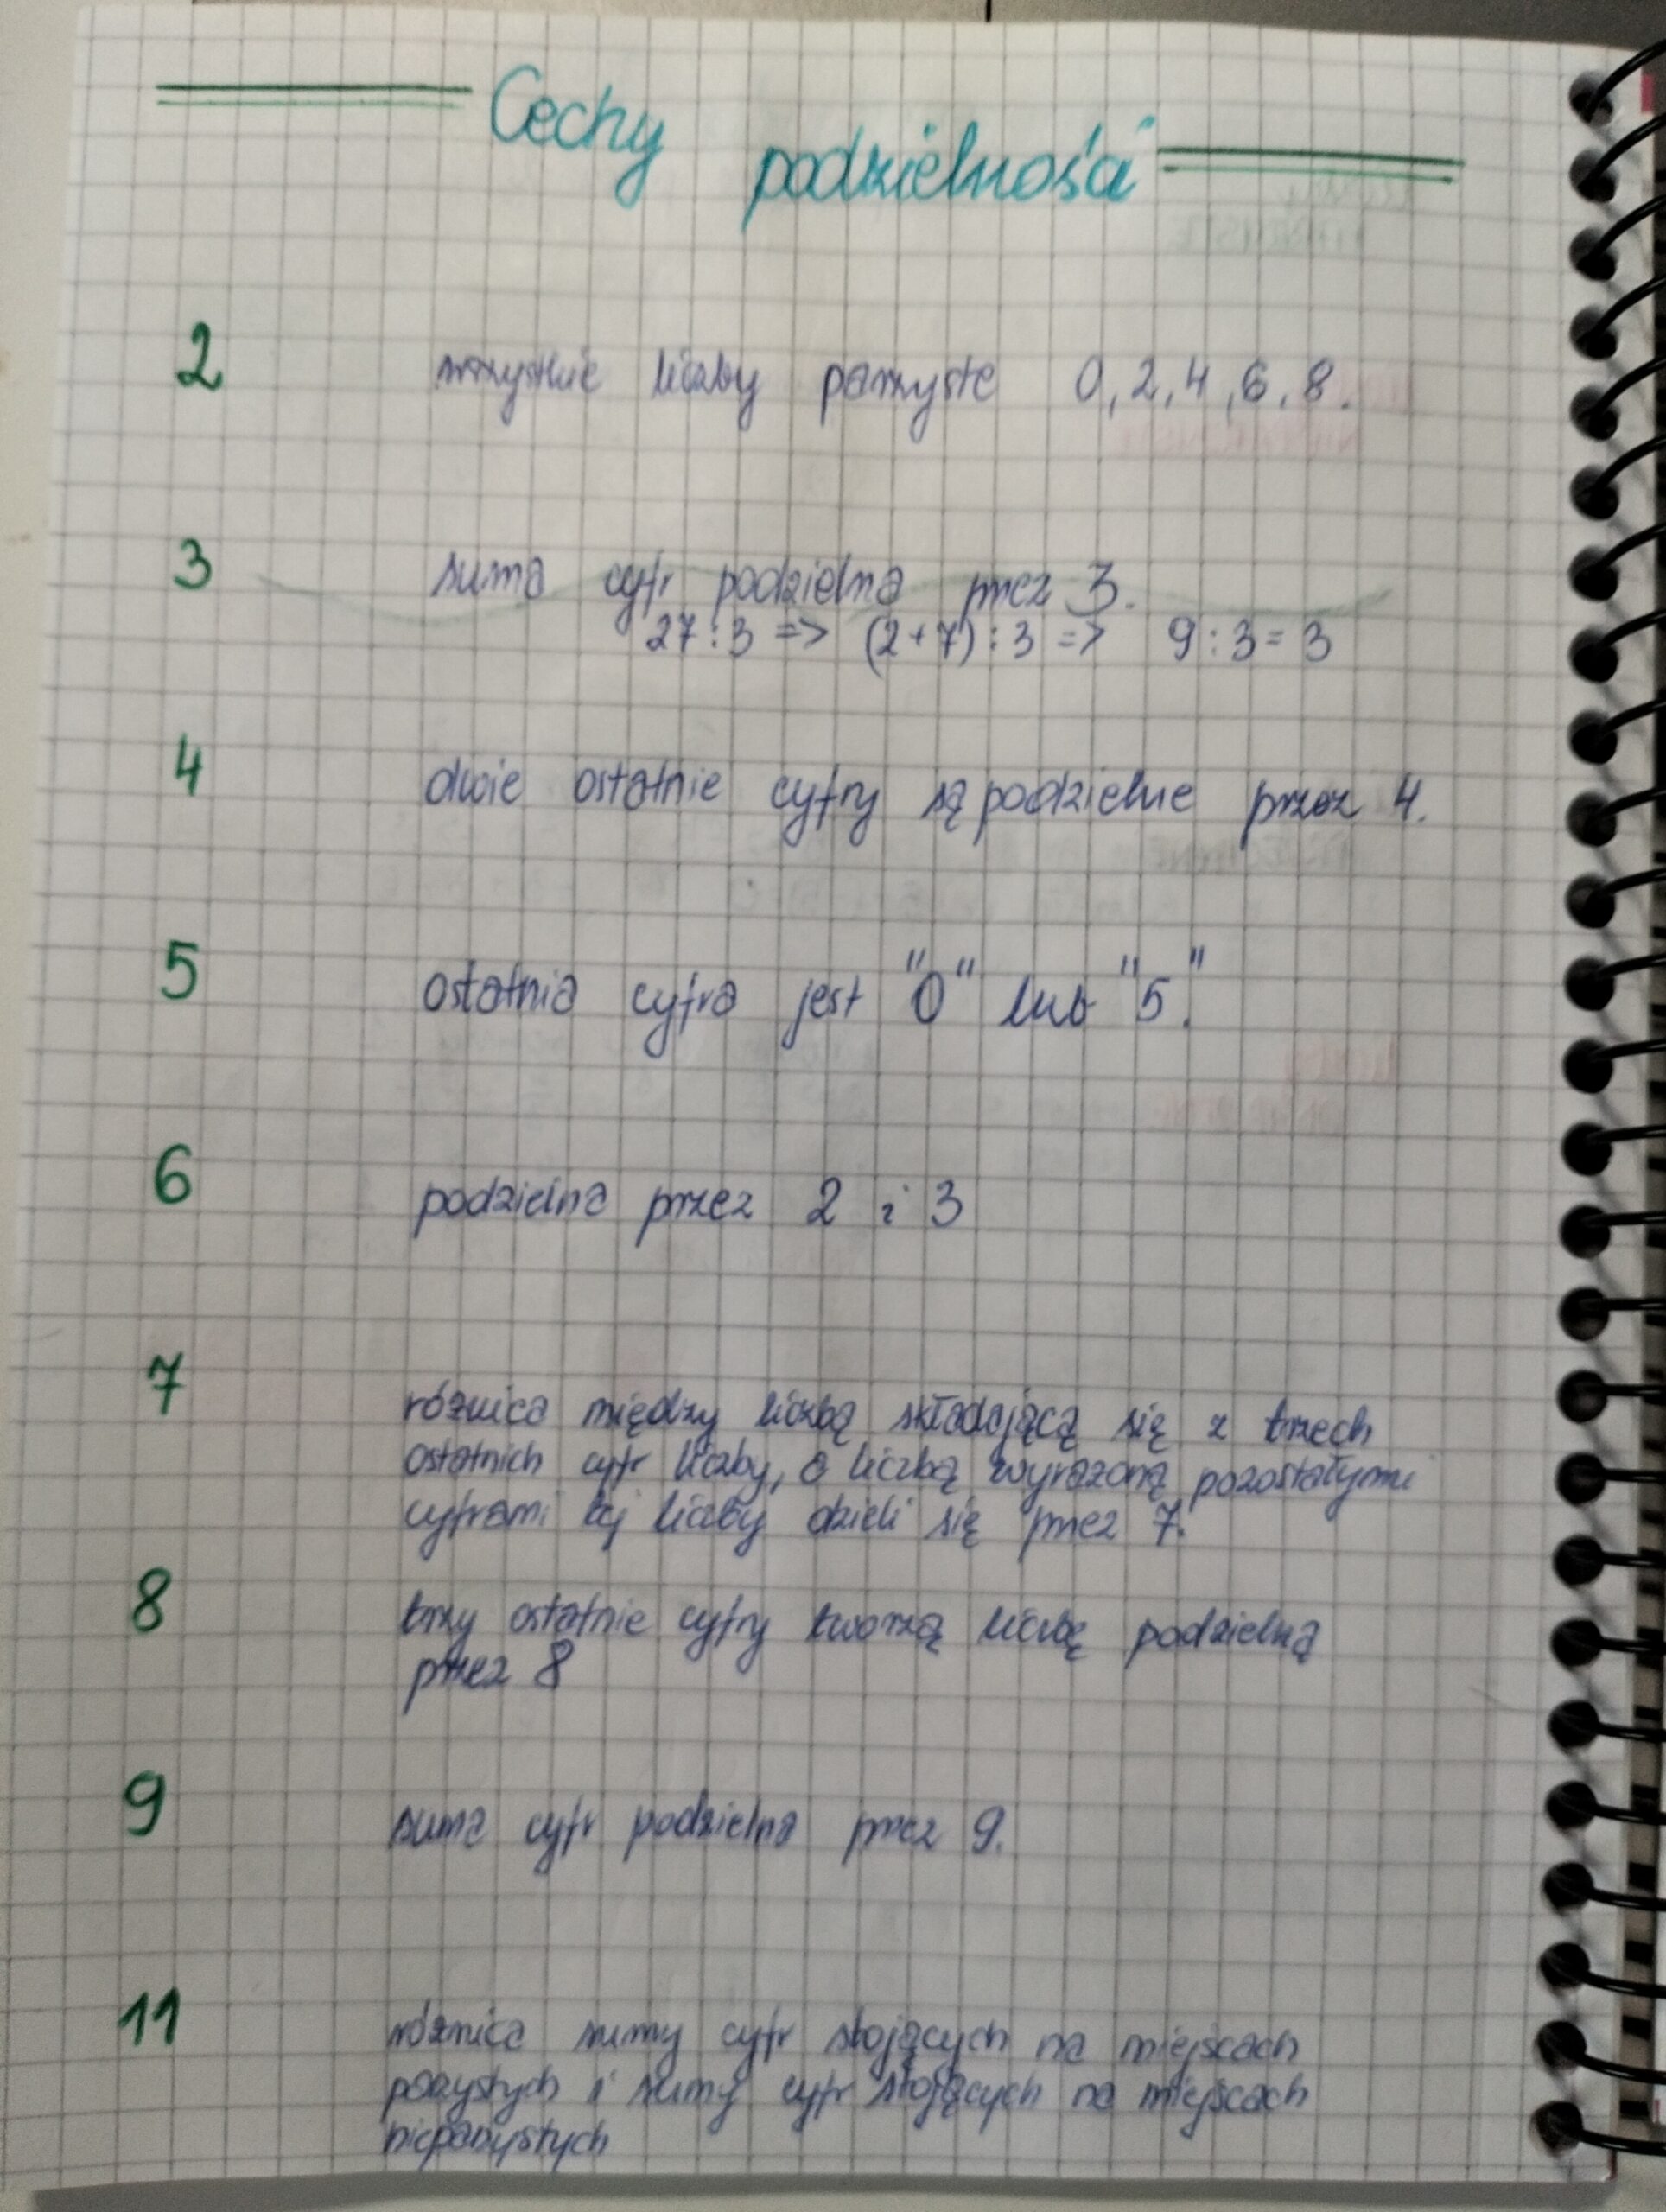 Cechy podzielności
2 wszystkie liczby parzyste 0, 2, 4, 6, 8.
3 suma cyfr podzielna przez 3.
27 : 3 => (2+7) : 3 => 9 : 3 = 3
4 dwie ostatnie cyfry są podzielne przez 4.
5 ostatnia cyfra jest "0" lub "5".
6 podzielna przez 2 i 3
7 różnica między liczbą składającą się z trzech
ostatnich cyfr liczby, a liczbą wyrażoną pozostałymi
cyframi tej liczby dzieli się przez 7.
8 trzy ostatnie cyfry tworzą liczbę podzielną
przez 8
9 suma cyfr podzielna przez 9.
11 różnica sumy cyfr stojących na miejscach
parzystych i sumy cyfr stojących na miejscach
nieparzystych